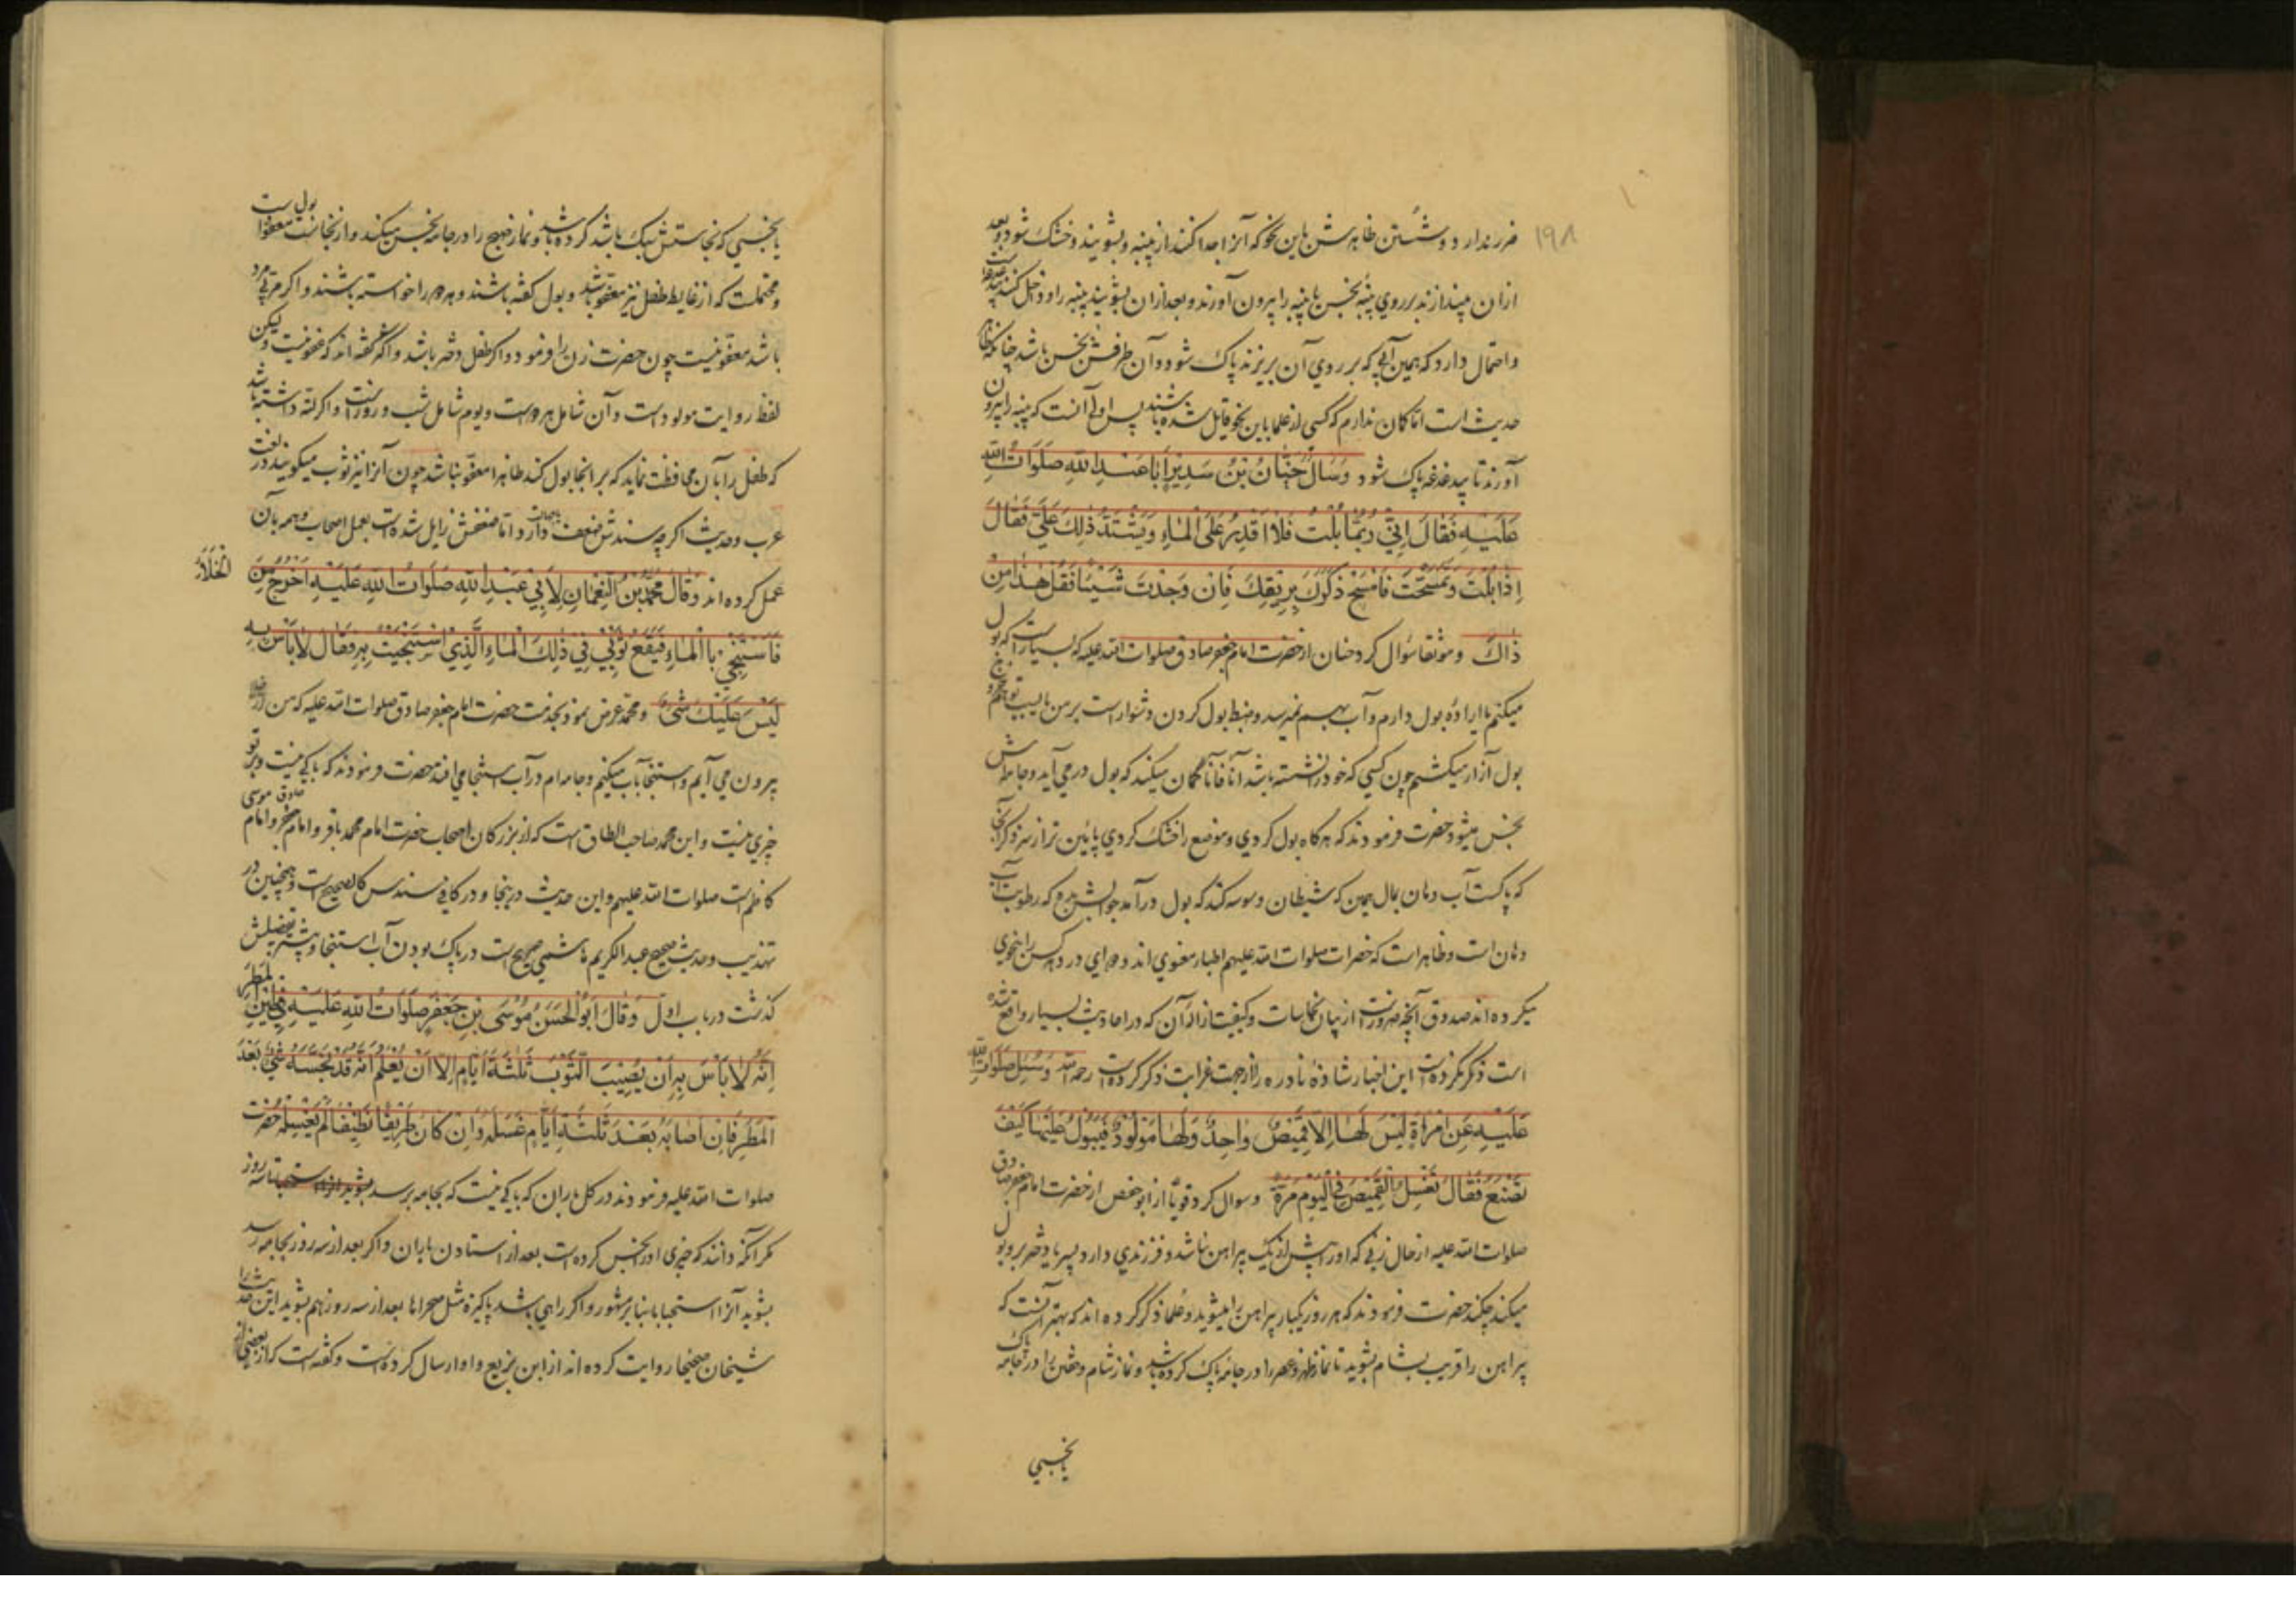 ۱۹۸
ضرر ندارد و شستن ظاهرش باین نحو که آنرا جدا کنند از پنبه و بشویند و خشک شود و بعد
ازان بیندازند بر روی پنبه نجس یا پنبه را بیرون آورند و بعد ازان بشویند پنبه را و داخل کنند
واحتمال دارد که همین آبی که بر روی آن بریزند پاک شود و آن طرفش نجس باشد چنانکه ظاهر
حدیث است اما کمان ندارم که کسی از علما باین نحو قایل شده باشند پس اولی آنست که پنبه را بیرون
آورند تا بیدغدغه پاک شود و وَسَأَلَ حَنَانُ بْنُ سَدِيرٍ اَبَا عَبْدِ اللهِ صَلَوَاتُ اللهِ
عَلَيْهِ فَقَالَ اِنِّي رُبَّمَا بُلْتُ فَلَا اَقْدِرُ عَلَى الْمَاءِ وَيَشْتَدُّ ذَلِكَ عَلَيَّ فَقَالَ
اِذَا بُلْتَ وَتَمَسَّحْتَ فَامْسَحْ ذَكَرَكَ بِرِيقِكَ فَاِنْ وَجَدْتَ شَيْئًا فَقُلْ هَذَا مِنْ
ذَاكَ وموثقا سؤال کرد حنان از حضرت امام جعفر صادق صلوات الله علیه که بسیارست که بول
میکنم یا اراده بول دارم و آب بهم نمیرسد و ضبط بول کردن دشوار است بر من
بول آزار میکشم چون کسی که خود را نشسته باشد آنا فآنا گمان میکند که بول در می آید و جامه اش
نجس میشود حضرت فرمودند که هرگاه بول کردی و موضع را خشک کردی پایین تر از سر ذکر انجا
که پاکست آب دهان بمال همین که شیطان وسوسه کند که بول در آمد جوابش بگو که رطوبت آب
دهان است وظاهر است که حضرات صلوات الله علیهم اطباء معنوی اند و دوای درد هر کس را بنحوی
میکرده اند صدوق آنچه ضرورتست از بیان نجاسات و کیفیت ازاله آن که در احادیث بسیار واقع شده
است ذکر نکرده است این اخبار شاذه نادره را از جهت غرابت ذکر کرده است رحمه الله وَسُئِلَ صَلَوَاتُ اللهِ
عَلَيْهِ عَنِ امْرَأَةٍ لَيْسَ لَهَا اِلَّا قَمِيصٌ وَاحِدٌ وَلَهَا مَوْلُودٌ فَيَبُولُ عَلَيْهَا كَيْفَ
تَصْنَعُ فَقَالَ تَغْسِلُ الْقَمِيصَ فِي الْيَوْمِ مَرَّةً وسوال کرد قویا از ابو حفص از حضرت امام جعفر صادق
صلوات الله علیه از حال زنی که او را بیش از یک پیراهن نباشد و فرزندی دارد پسر یا دختر بر و بول
میکند چکند حضرت فرمودند که هر روز یکبار پیراهن را میشوید و علما ذکر کرده اند که بهتر آنست که
پیراهن را قریب بشام بشوید تا نماز ظهر و عصر را در جامه پاک کرده باشد و نماز شام و خفتن را در جامه پاک
یا نجسی
یا نجسی که نجاستش سبک باشد کرده باشد و نماز صبح را در جامه نجس میکند و از نجاست بول معفواست
و محتملست که از غایط طفل نیز معفو باشد و بول گفته باشند و هر دو را خواسته باشند و اگر مربی مرد
باشد معفو نیست چون حضرت زن را فرمود و اگر طفل دختر باشد اکثر گفته اند که عفو نیست ولیکن
لفظ روایت مولود است و آن شامل هر دو است و یوم شامل شب و روز است و اگر لته داشته باشد
که طفل را بآن محافظت نماید که بر انجا بول کند ظاهرا معفو نباشد چون آنرا نیز ثوب میگویند در لغت
عرب و حدیث اگر چه سندش ضعف دارد اما ضعفش زایل شده است بعمل اصحاب و همه بآن
عمل کرده اند وَقَالَ مُحَمَّدُ بْنُ النُّعْمَانِ لِاَبِي عَبْدِ اللهِ صَلَوَاتُ اللهِ عَلَيْهِ اَخْرُجُ مِنَ الْخَلَاءِ
فَاَسْتَنْجِي بِالْمَاءِ فَيَقَعُ ثَوْبِي فِي ذَلِكَ الْمَاءِ الَّذِي اسْتَنْجَيْتُ بِهِ فَقَالَ لَا بَأْسَ بِهِ
لَيْسَ عَلَيْكَ شَيْءٌ و محمد عرض نمود بخدمت حضرت امام جعفر صادق صلوات الله علیه که من از خلا
بیرون می آیم و استنجا بآب میکنم و جامه ام در آب استنجا می افتد حضرت فرمودند که باکی نیست و بر تو
چیزی نیست و این محمد صاحب الطاق است که از بزرگان اصحاب حضرت امام محمد باقر و امام جعفر صادق و امام موسی
کاظم است صلوات الله علیهم و این حدیث در اینجا و در کافی سندش کالصحیح است و همچنین در
تهذیب و حدیث صحیح عبد الکریم هاشمی صریح است در پاک بودن آب استنجا و پیشتر تفضیلش
گذشت در باب اول وَقَالَ اَبُو الْحَسَنِ مُوسَى بْنُ جَعْفَرٍ صَلَوَاتُ اللهِ عَلَيْهِ فِي طِينِ الْمَطَرِ
اِنَّهُ لَا بَأْسَ بِهِ اَنْ يُصِيبَ الثَّوْبَ ثَلَثَةَ اَيَّامٍ اِلَّا اَنْ يُعْلَمَ اَنَّهُ قَدْ نَجَّسَهُ شَيْءٌ بَعْدَ
الْمَطَرِ فَاِنْ اَصَابَهُ بَعْدَ ثَلَثَةِ اَيَّامٍ غَسَلَهُ وَاِنْ كَانَ طَرِيقًا نَظِيفًا لَمْ يَغْسِلْهُ حضرت
صلوات الله علیه فرمودند در گل باران که باکی نیست که بجامه برسد تا سه روز
مگر آنکه دانند که چیزی او را نجس کرده است بعد از استادن باران و اگر بعد از سه روز بجامه رسد
بشوید آنرا استحبابا بنا بر مشهور و اگر راهی باشد پاکیزه مثل صحراها بعد از سه روز هم نشوید این حدیث را
شیخان صحیحا روایت کرده اند از ابن بزیع و او ارسال کرده است و گفته است که از بعضی از